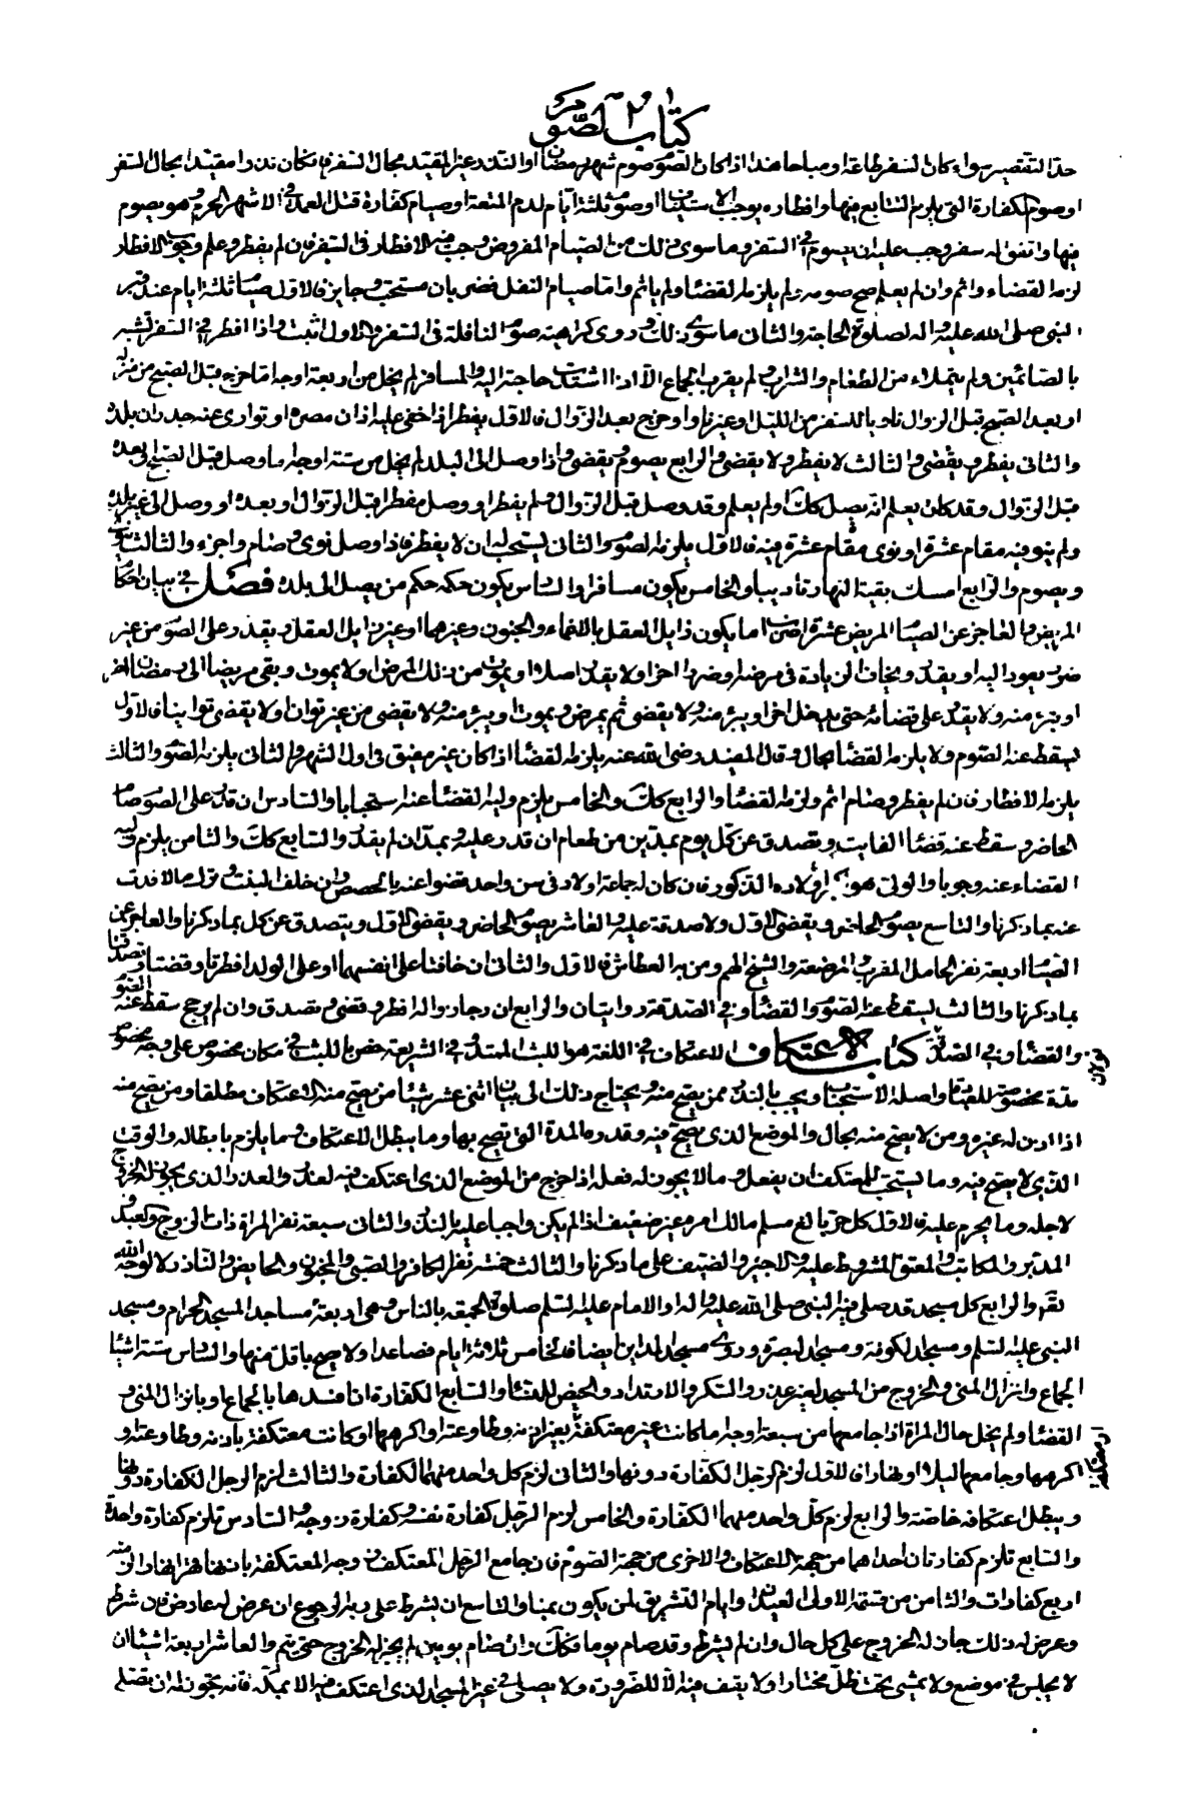 كتاب الصوم
حد التقصير سواء كان السفر طاعة او مباحا هذا اذا كان الصوم صوم شهر رمضان او النذر غير المقيد بحال السفر فان كان نذرا مقيدا بحال السفر
او صوم الكفارة التى يلزم التتابع فيها وافطاره يوجب الاستيناف او صوم ثلثة ايام لدم المتعة او صيام كفارة قتل العمد فى الاشهر الحرم وهو يصوم
فيها واتفق له سفر وجب عليه ان يصوم فى السفر وما سوى ذلك من الصيام المفروض وجب فيه الافطار فى السفر فان لم يفطر وعلم وجوب الافطار
لزمه القضاء واثم وان لم يعلم صح صومه ولم يلزمه القضاء ولم ياثم واما صيام النفل فضربان مستحب وجايز فالاول صيام ثلثة ايام عند قبر
النبى صلى الله عليه واله لصلوة الحاجة والثانى ما سوى ذلك وروى كراهية صوم النافلة فى السفر والاول اثبت واذا افطر فى السفر تشبه
بالصائمين ولم يتملاء من الطعام والشراب ولم يقرب الجماع الا اذا اشتدت حاجته اليه والمسافر لم يخل من اربعة اوجه اما خرج قبل الصبح من منزله
او بعد الصبح قبل الزوال ناويا للسفر من الليل او غير ناو او خرج بعد الزوال فالاول يفطر اذا خفى عليه اذان مصره او توارى عنه جدران بلده
والثانى يفطر ويقضى والثالث لا يفطر ولا يقضى والرابع يصوم ويقضى واذا وصل الى البلد لم يخل من ستة اوجه اما وصل قبل الصبح او بعده
قبل الزوال وقد كان يعلم انه يصل كذلك او لم يعلم وقد وصل قبل الزوال ولم يفطر او وصل مفطرا قبل الزوال او بعده او وصل الى غير بلده
ولم ينو فيه مقام عشرة او نوى مقام عشرة فيه فالاول يلزمه الصوم والثانى يستحب له ان لا يفطر فاذا وصل نوى وصام واجزء والثالث ينوى
ويصوم والرابع امسك بقية النهار تاديبا والخامس يكون مسافرا والسادس يكون حكمه حكم من يصل الى بلده فصل فى بيان احكام
المريض والعاجز عن الصيام المريض عشرة اضرب اما يكون زايل العقل بالاغماء والجنون وغيرهما او غير زايل العقل ويقدر على الصوم من غير
ضرر يعود اليه او يقدر ويخاف الزيادة فى مرضه او ضررا اخر او لا يقدر اصلا او يموت من ذلك المرض او لا يموت وبقى مريضا الى رمضان اخر
او برئ منه ولا يقدر على قضائه حتى يدخل اخر او يبرء منه ولا يقضى ثم يمرض ويموت او يبرء منه ولا يقضى من غير توان او لا يقضى توانيا فالاول
يسقط عنه الصوم ولا يلزمه القضاء بحال وقال المفيد رضى الله عنه يلزمه القضاء اذا كان غير مفيق فى اول الشهر والثانى يلزمه الصوم والثالث
يلزمه الافطار فان لم يفطر وصام اثم ولزمه القضاء والرابع كذلك والخامس يلزم وليه القضاء عنه استحبابا والسادس ان قدر على الصوم صام
الحاضر وسقط عنه قضاء الفايت ويتصدق عن كل يوم بمدين من طعام ان قدر عليه وبمد ان لم يقدر والسابع كذلك والثامن يلزم وليه
القضاء عنه وجوبا والولى هو اكبر اولاده الذكور فان كان له جماعة اولاد فى سن واحد قضوا عنه بالحصص وان خلف البنت وترك مالا فدت
عنه بما ذكرنا والتاسع يصوم الحاضر ويقضى الاول ولا صدقة عليه والعاشر يصوم الحاضر ويقضى الاول ويتصدق عن كل بما ذكرنا والعاجز عن
الصيام اربعة نفر الحامل المقرب والمرضعة والشيخ الهم ومن به العطاش فالاول والثانى ان خافتا على انفسهما او على الولد افطرتا وقضتا وتصدقتا
بما ذكرنا والثالث يسقط عنه الصوم والقضاء وفى الصدقة روايتان والرابع ان رجا زواله افطر وقضى وتصدق وان لم يرج سقط عنه الصوم
والقضاء وفى الصدقة قولان كتاب الاعتكاف الاعتكاف فى اللغة هو اللبث الممتد وفى الشريعة خص باللبث فى مكان مخصوص على وجه مخصوص
مدة مخصوصة للعبادة واصله الاستحباب ويجب بالنذر ممن يصح منه ويحتاج ذلك الى بيان اثنى عشر شيئا من يصح منه الاعتكاف مطلقا ومن يصح منه
اذا اذن له غيره ومن لا يصح منه بحال والموضع الذى يصح فيه وقدر المدة التى تصح بها وما يبطل الاعتكاف وما يلزم بابطاله والوقت
الذى لا يصح فيه وما يستحب للمعتكف ان يفعل وما لا يجوز له فعله اذا خرج من الموضع الذى اعتكف فيه لعذر والعذر الذى يجوز له الخروج
لاجله وما يحرم عليه فالاول كل حر بالغ مسلم مالك امره غير ضيف اذا لم يكن واجبا عليه بالنذر والثانى سبعة نفر المراة ذات الزوج والعبد و
المدبر والمكاتب والمعتق المشروط عليه والاجير والضيف على ما ذكرنا والثالث خمسة نفر الكافر والصبى والمجنون والحايض والناذر لا لوجه الله
تقرء والرابع كل مسجد قد صلى فيه النبى صلى الله عليه واله او الامام عليه السلم صلوة الجمعة بالناس وهى اربعة مساجد المسجد الحرام ومسجد
النبى عليه السلم ومسجد الكوفة ومسجد البصرة وروى مسجد المداين ايضا والخامس ثلاثة ايام فصاعدا ولا يصح باقل منها والسادس ستة اشيا
الجماع وانزال المنى والخروج من المسجد لغير عذر والسكر والارتداد والحيض للنساء والسابع الكفارة ان افسدها بالجماع او بانزال المنى و
القضاء ولم يخل حال المراة اذا جامعها من سبعة اوجه اما كانت غير معتكفة بغير اذنه وطاوعته او اكرهها او كانت معتكفة باذنه وطاوعته او
اكرهها وجامعها ليلا او نهارا فالاول لزم الرجل الكفارة دونها والثانى لزم كل واحد منهما الكفارة والثالث لزم الرجل الكفارة دونها
ويبطل اعتكافه خاصة والرابع لزم كل واحد منهما الكفارة والخامس لزم الرجل كفارة نفسه وكفارة زوجه والسادس تلزم كفارة واحدة
والسابع تلزم كفارتان احداهما من جهة الاعتكاف والاخرى من جهة الصوم فان جامع الرجل المعتكف زوجه المعتكفة باذنها نهارا لزمته
اربع كفارات والثامن من قسمة الاولى العيدان وايام التشريق لمن يكون بمنا والتاسع ان يشرط على ربه الرجوع ان عرض له عارض فان شرط
وعرض له ذلك جاز له الخروج على كل حال وان لم يشرط وقد صام يوما فكذلك وان صام يومين لم يجز له الخروج حتى يتم والعاشر اربعة اشياء ان
لا يجلس فى موضع ولا يمشى تحت ظل مختارا ولا يقف فيه الا للضرورة ولا يصلى فى غير المسجد الذى اعتكف فيه الا بمكة فانه يجوز له ان يصلى